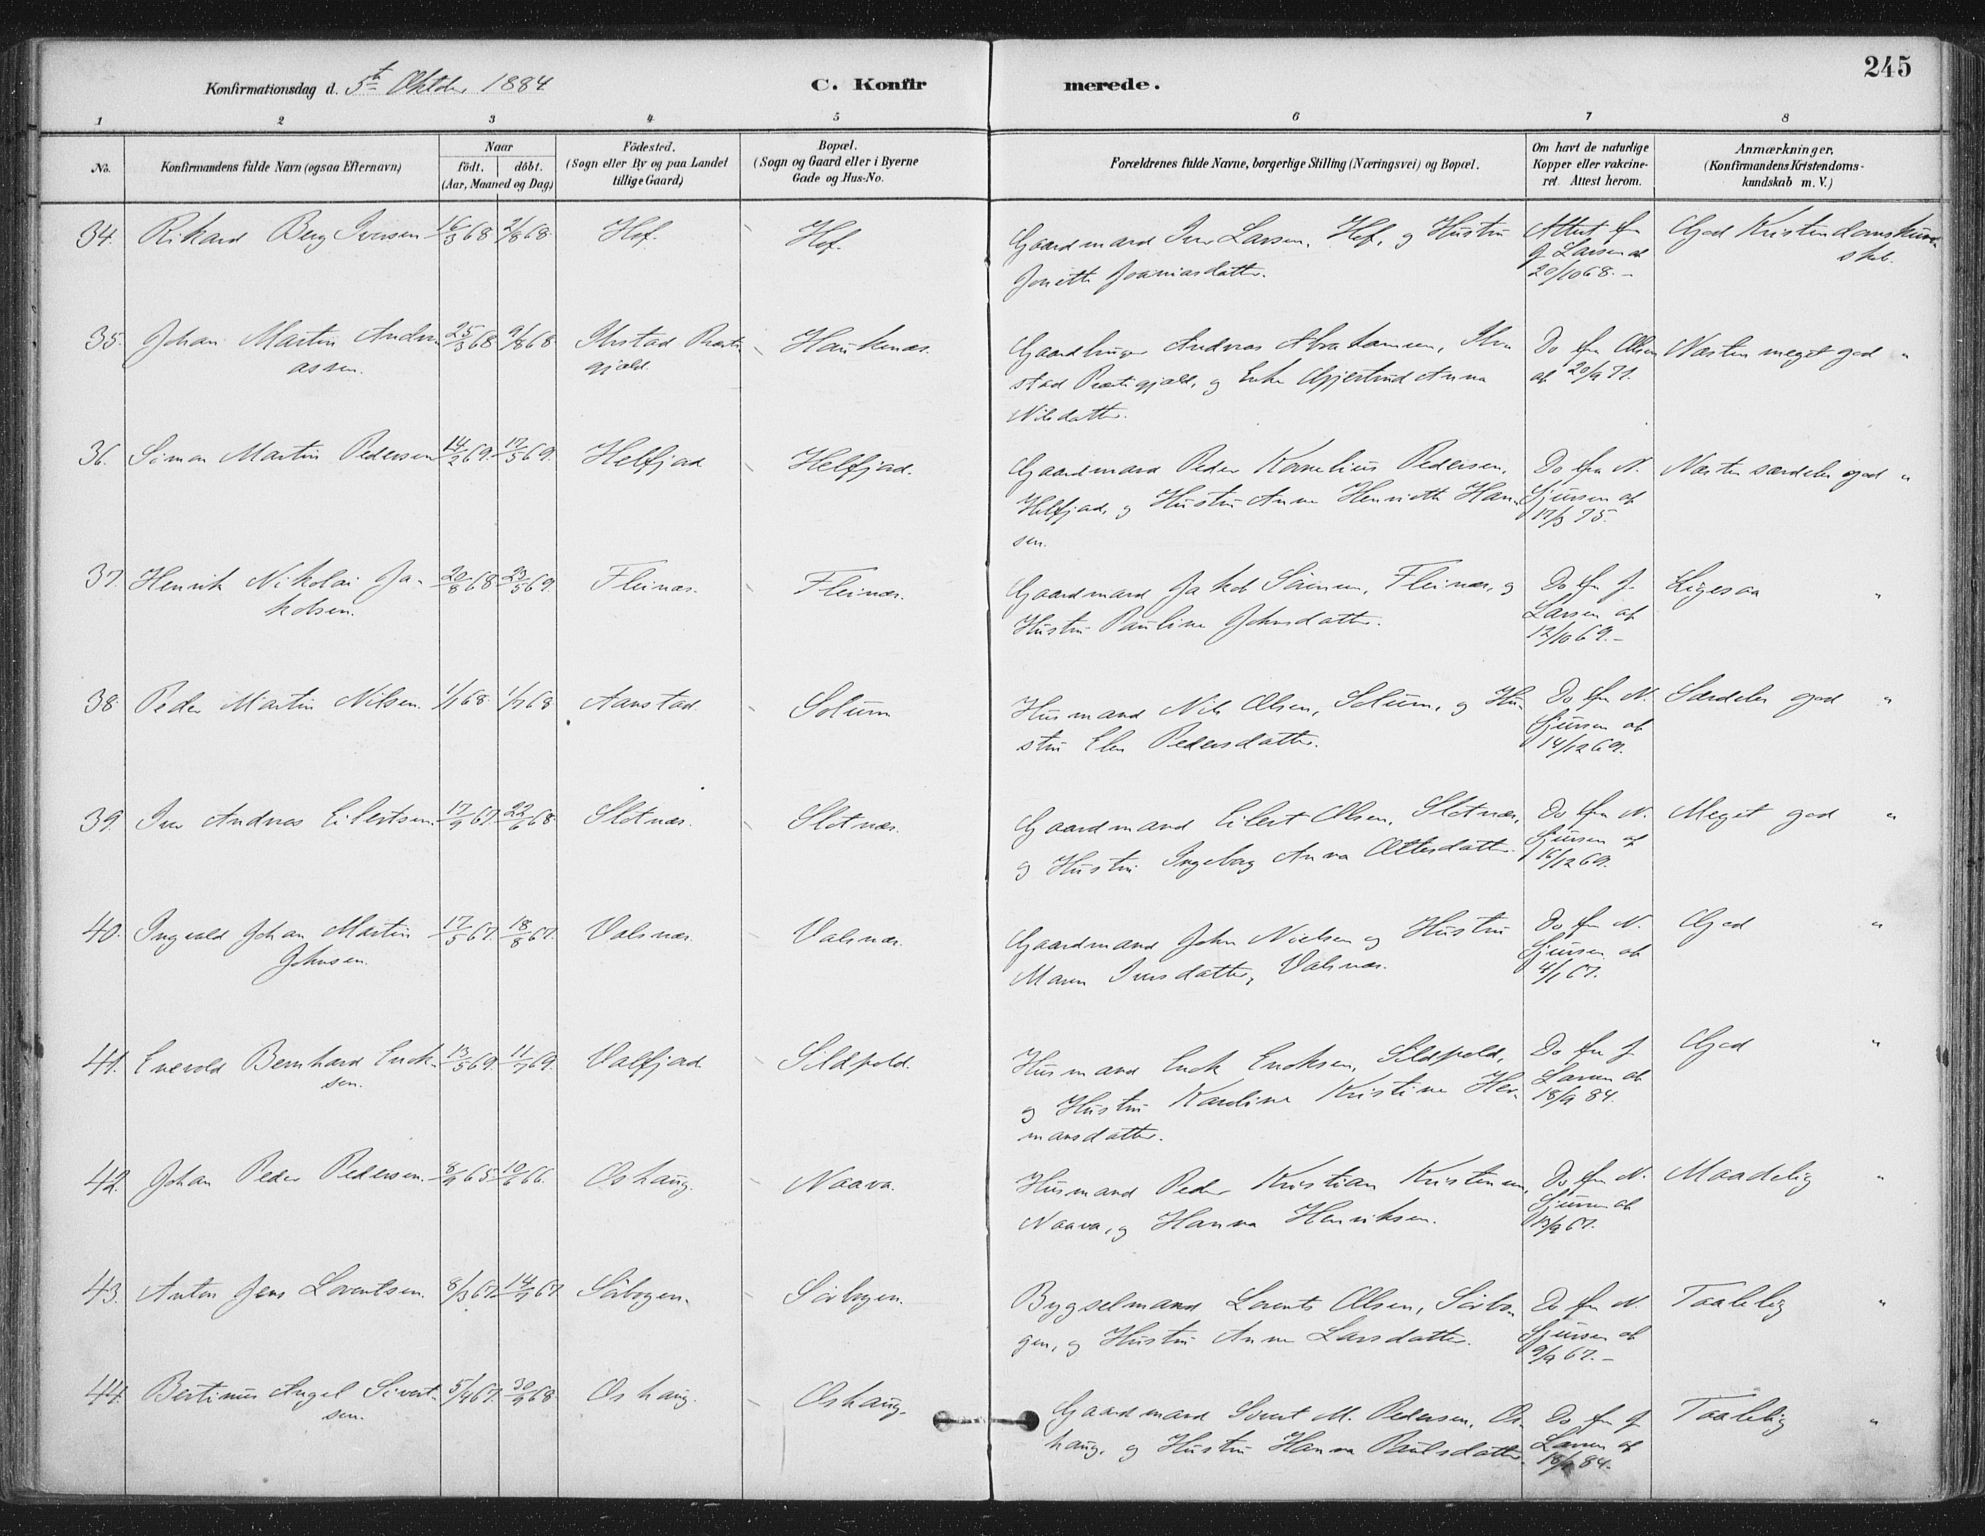 245
Konfirmationsdag d. 5te Oktober 1884
C. Konfirmerede.
1 2 3 4 5 6 7 8
No.
Konfirmandens fulde Navn (ogsaa Efternavn)
Naar
født. døbt.
(Aar, Maaned og Dag)
Fødested.
(Sogn eller By og paa Landet
tillige Gaard)
Bopæl.
(Sogn og Gaard eller i Byerne
Gade og Hus-No.
Forældrenes fulde Navne, borgerlige Stilling (Næringsvei) og Bopæl.
Om havt de naturlige
Kopper eller vakcine-
ret. Attest herom.
Anmærkninger,
(Konfirmandens Kristendoms-
kundskab m. V.)
34. Rikard Berg Iversen 16/3 68 2/8 68 Hof. Hof.
Gaardmand Iver Larsen, Hof, og Hustru
Jonette Joaminsdatter.
Attest fra
J. Larsen af
20/10 68.
God Kristendomskund-
skab.
35. Johan Martin Andre-
assen. 25/3 68 9/8 68 Ibestad Præste-
gjæld. Haukenæs.
Gaardbruger Andreas Abrahamsen, Ibe-
stad Præstegjæld, og Enke Gjertrud Anna
Nilsdatter.
Do fra Olsen
af 20/9 71.
Næsten meget god "
36. Simon Martin Pedersen 14/2 69. 17/5 69. Helfjord Helfjord.
Gaardmand Peder Kornelius Pedersen,
Helfjord, og Hustru Anne Henriette Han-
sen.
Do fra N.
Sjursen af
17/9 75.
Næsten særdeles god "
37. Henrik Nikolai Ja-
kobsen. 20/8 68 23/5 69. Fleinæs. Fleinæs.
Gaardmand Jakob Sörensen, Fleinæs, og
Hustru Pauline Johnsdatter.
Do fra J.
Larsen af
12/10 69.
Ligesaa "
38. Peder Martin Nilsen. 1/1 68. 1/7 68 Aanstad Solum
Husmand Nils Olsen, Solum, og Hu-
stru Elen Pedersdatter.
Do fra N.
Sjursen af
14/12 69.
Særdeles god "
39. Iver Andreas Eilertsen. 17/9 67. 22/6 68. Slotnæs. Slotnæs.
Gaardmand Eilert Olsen, Slotnæs,
og Hustru Ingeborg Anna Ottesdatter.
Do fra N.
Sjursen af
16/12 69.
Meget god "
40. Ingvald Johan Martin
Johnsen. 17/5 67. 18/8 67. Valsnæs. Valsnæs.
Gaardmand John Nielsen og Hustru
Maren Iversdatter, Valsnæs.
Do fra N.
Sjursen af
4/9 67.
God "
41. Enevold Bernhard Enok-
sen. 13/5 69. 11/7 69. Valfjord. Sildpold.
Husmand Enok Enoksen, Sildpold,
og Hustru Karoline Kristine Her-
mansdatter.
Do fra J.
Larsen af
18/9 84.
God "
42. Johan Peder Pedersen. 8/9 65 10/6 66. Oshaug. Naava.
Husmand Peder Kristian Kristensen,
Naava, og Hanna Henriksen.
Do fra N.
Sjursen af
13/9 67.
Maadelig "
43. Anton Jens Lorentsen. 8/3 67. 14/7 67 Sörbogen. Sörbogen.
Bygselmand Lorents Olsen, Sörbo-
gen, og Hustru Anne Larsdatter.
Do fra N.
Sjursen af
9/9 67.
Taalelig "
44. Bertinus Angel Sivert-
sen. 5/4 67. 30/7 68. Oshaug. Oshaug.
Gaardmand Sivert M. Pedersen, Os-
haug, og Hustru Hanna Paulsdatter.
Do fra J.
Larsen af
18/9 84.
Taalelig "